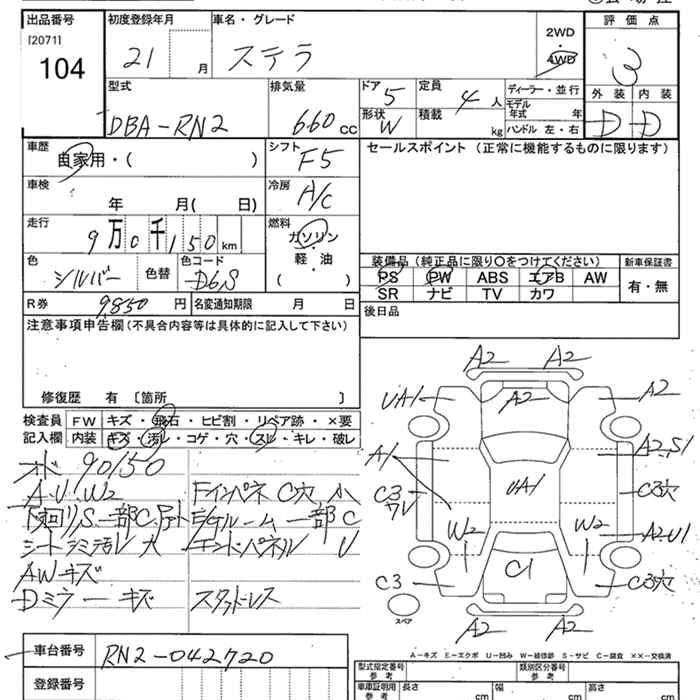 出品番号
[2071]
104
初度登録年月
21 月
車名・グレード
ステラ
2WD
・
4WD
評価点
3
外装 内装
D D
型式
DBA-RN2
排気量
660 cc
ドア
5
形状
W
定員
4 人
積載
kg
ディーラー・並行
モデル年式 年
ハンドル 左・右
車歴
自家用・( )
シフト
F5
セールスポイント (正常に機能するものに限ります)
車検
年 月( 日)
冷房
A/C
走行
9万0千150km
燃料
ガソリン
・
軽・油
( )
色
シルバー
色替
色コード
D6S
装備品(純正品に限り○をつけてください)
PS PW ABS エアB AW
SR ナビ TV カワ
新車保証書
有・無
R券
9,850 円
名変通知期限 月 日
後日品
注意事項申告欄(不具合内容等は具体的に記入して下さい)
修復歴 有 〔箇所 〕
検査員
記入欄
FW キズ・飛石・ヒビ割・リペア跡・×要
内装 キズ・汚レ・コゲ・穴・スレ・キレ・破レ
オド 90150
A.U.W2
下廻リS一部C
シートシミ汚レ大
AWキズ
Dミラーキズ
Fインパネ C穴 小
E/Gルーム一部C
エンドパネル U
スタッドレス
A2 A2
UA1 A2 A2
A1 A2.S1
C3 UA1 C3穴
ワレ
W2 W2 A2.U1
C3 C1 C3穴
スペア
A2 A2
A-キズ E-エクボ U-凹み W-補修跡 S-サビ C-腐食 ××-交換済
車台番号
RN2-042720
登録番号
型式指定番号
参考
類別区分番号
参考
車庫証明用
参考
長さ cm
幅 cm
高さ cm